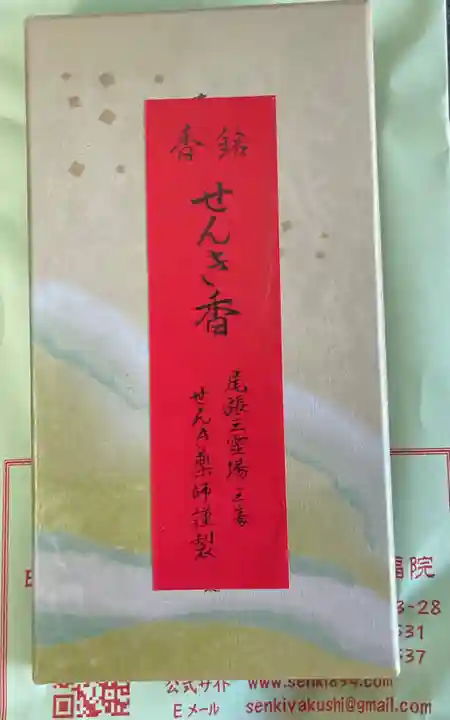 銘香
せんき香
尾張三霊場三番
せんき薬師謹製
福院
3-28
531
537
公式サイト www.senki894.com
Eメール senkiyakushi@gmail.com